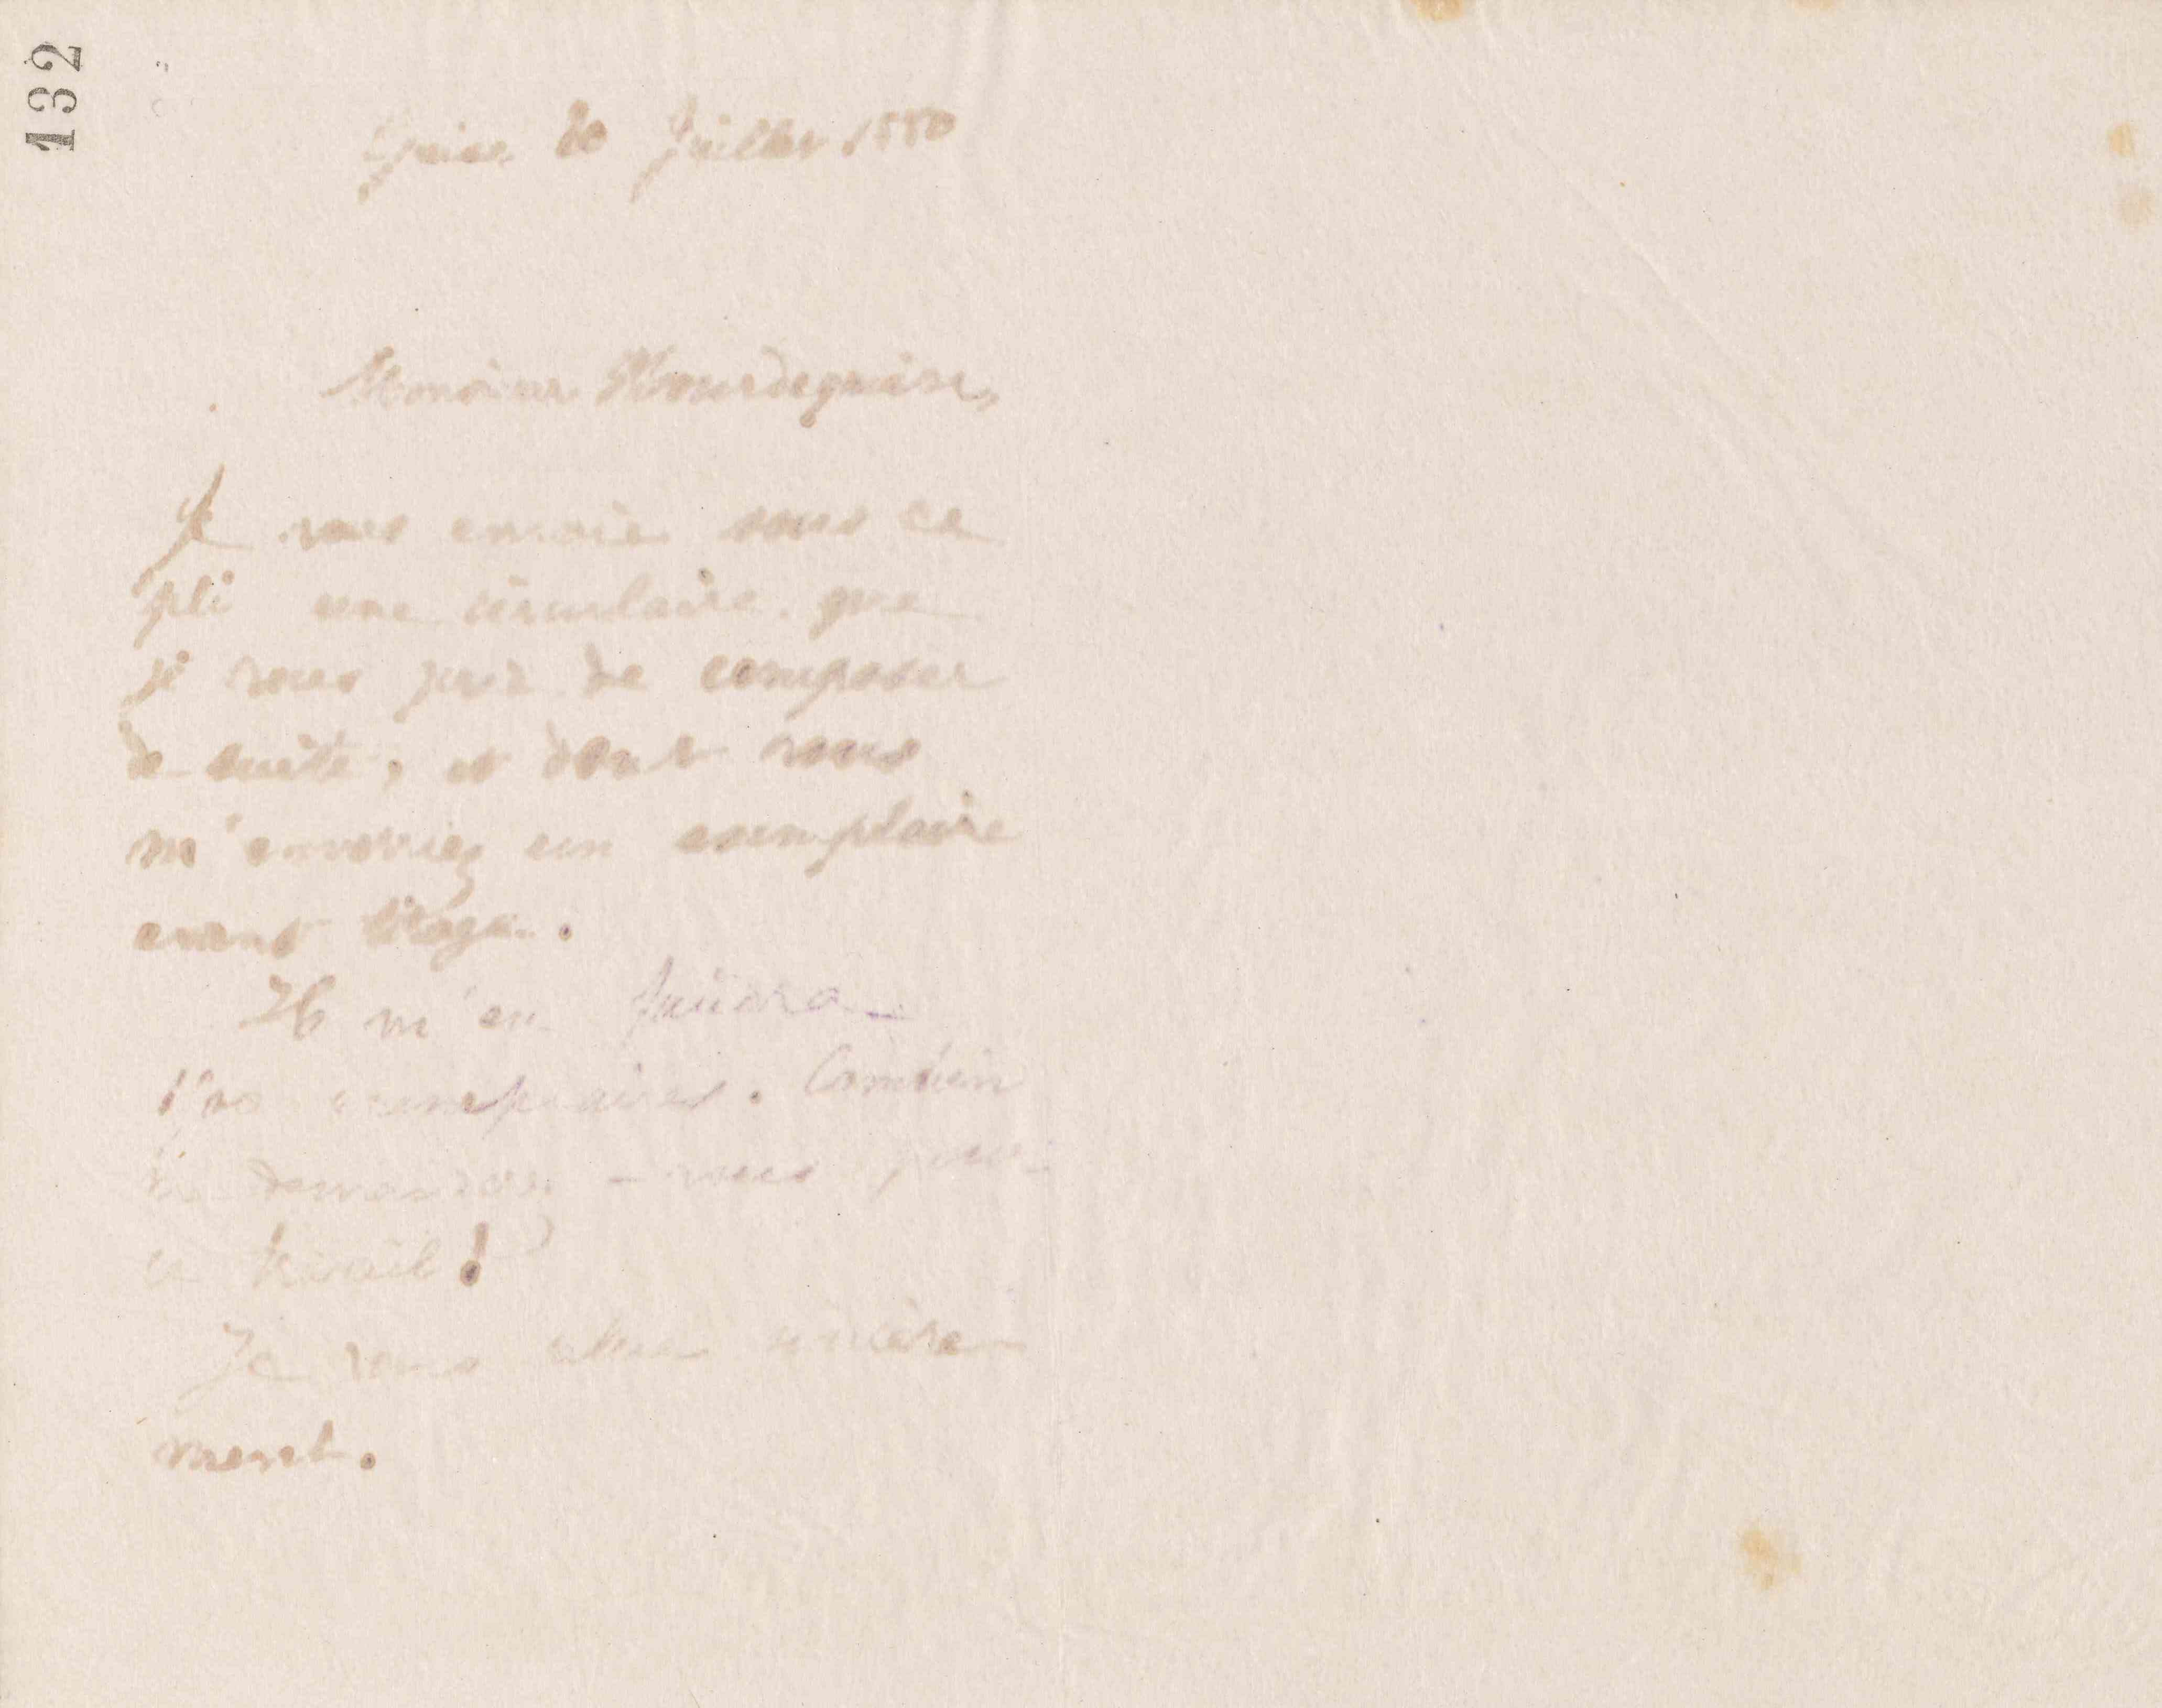 132
Guise 20 Juillet 1880
Monsieur
Je vous envoie sous ce
pli une circulaire que
je vous prie de composer
de suite, et dont vous
m'enverriez un exemplaire
avant tirage.
Il m'en faudra
exemplaires. Combien
demandez-vous pour
ce travail ?
Je vous salue sincère-
ment.